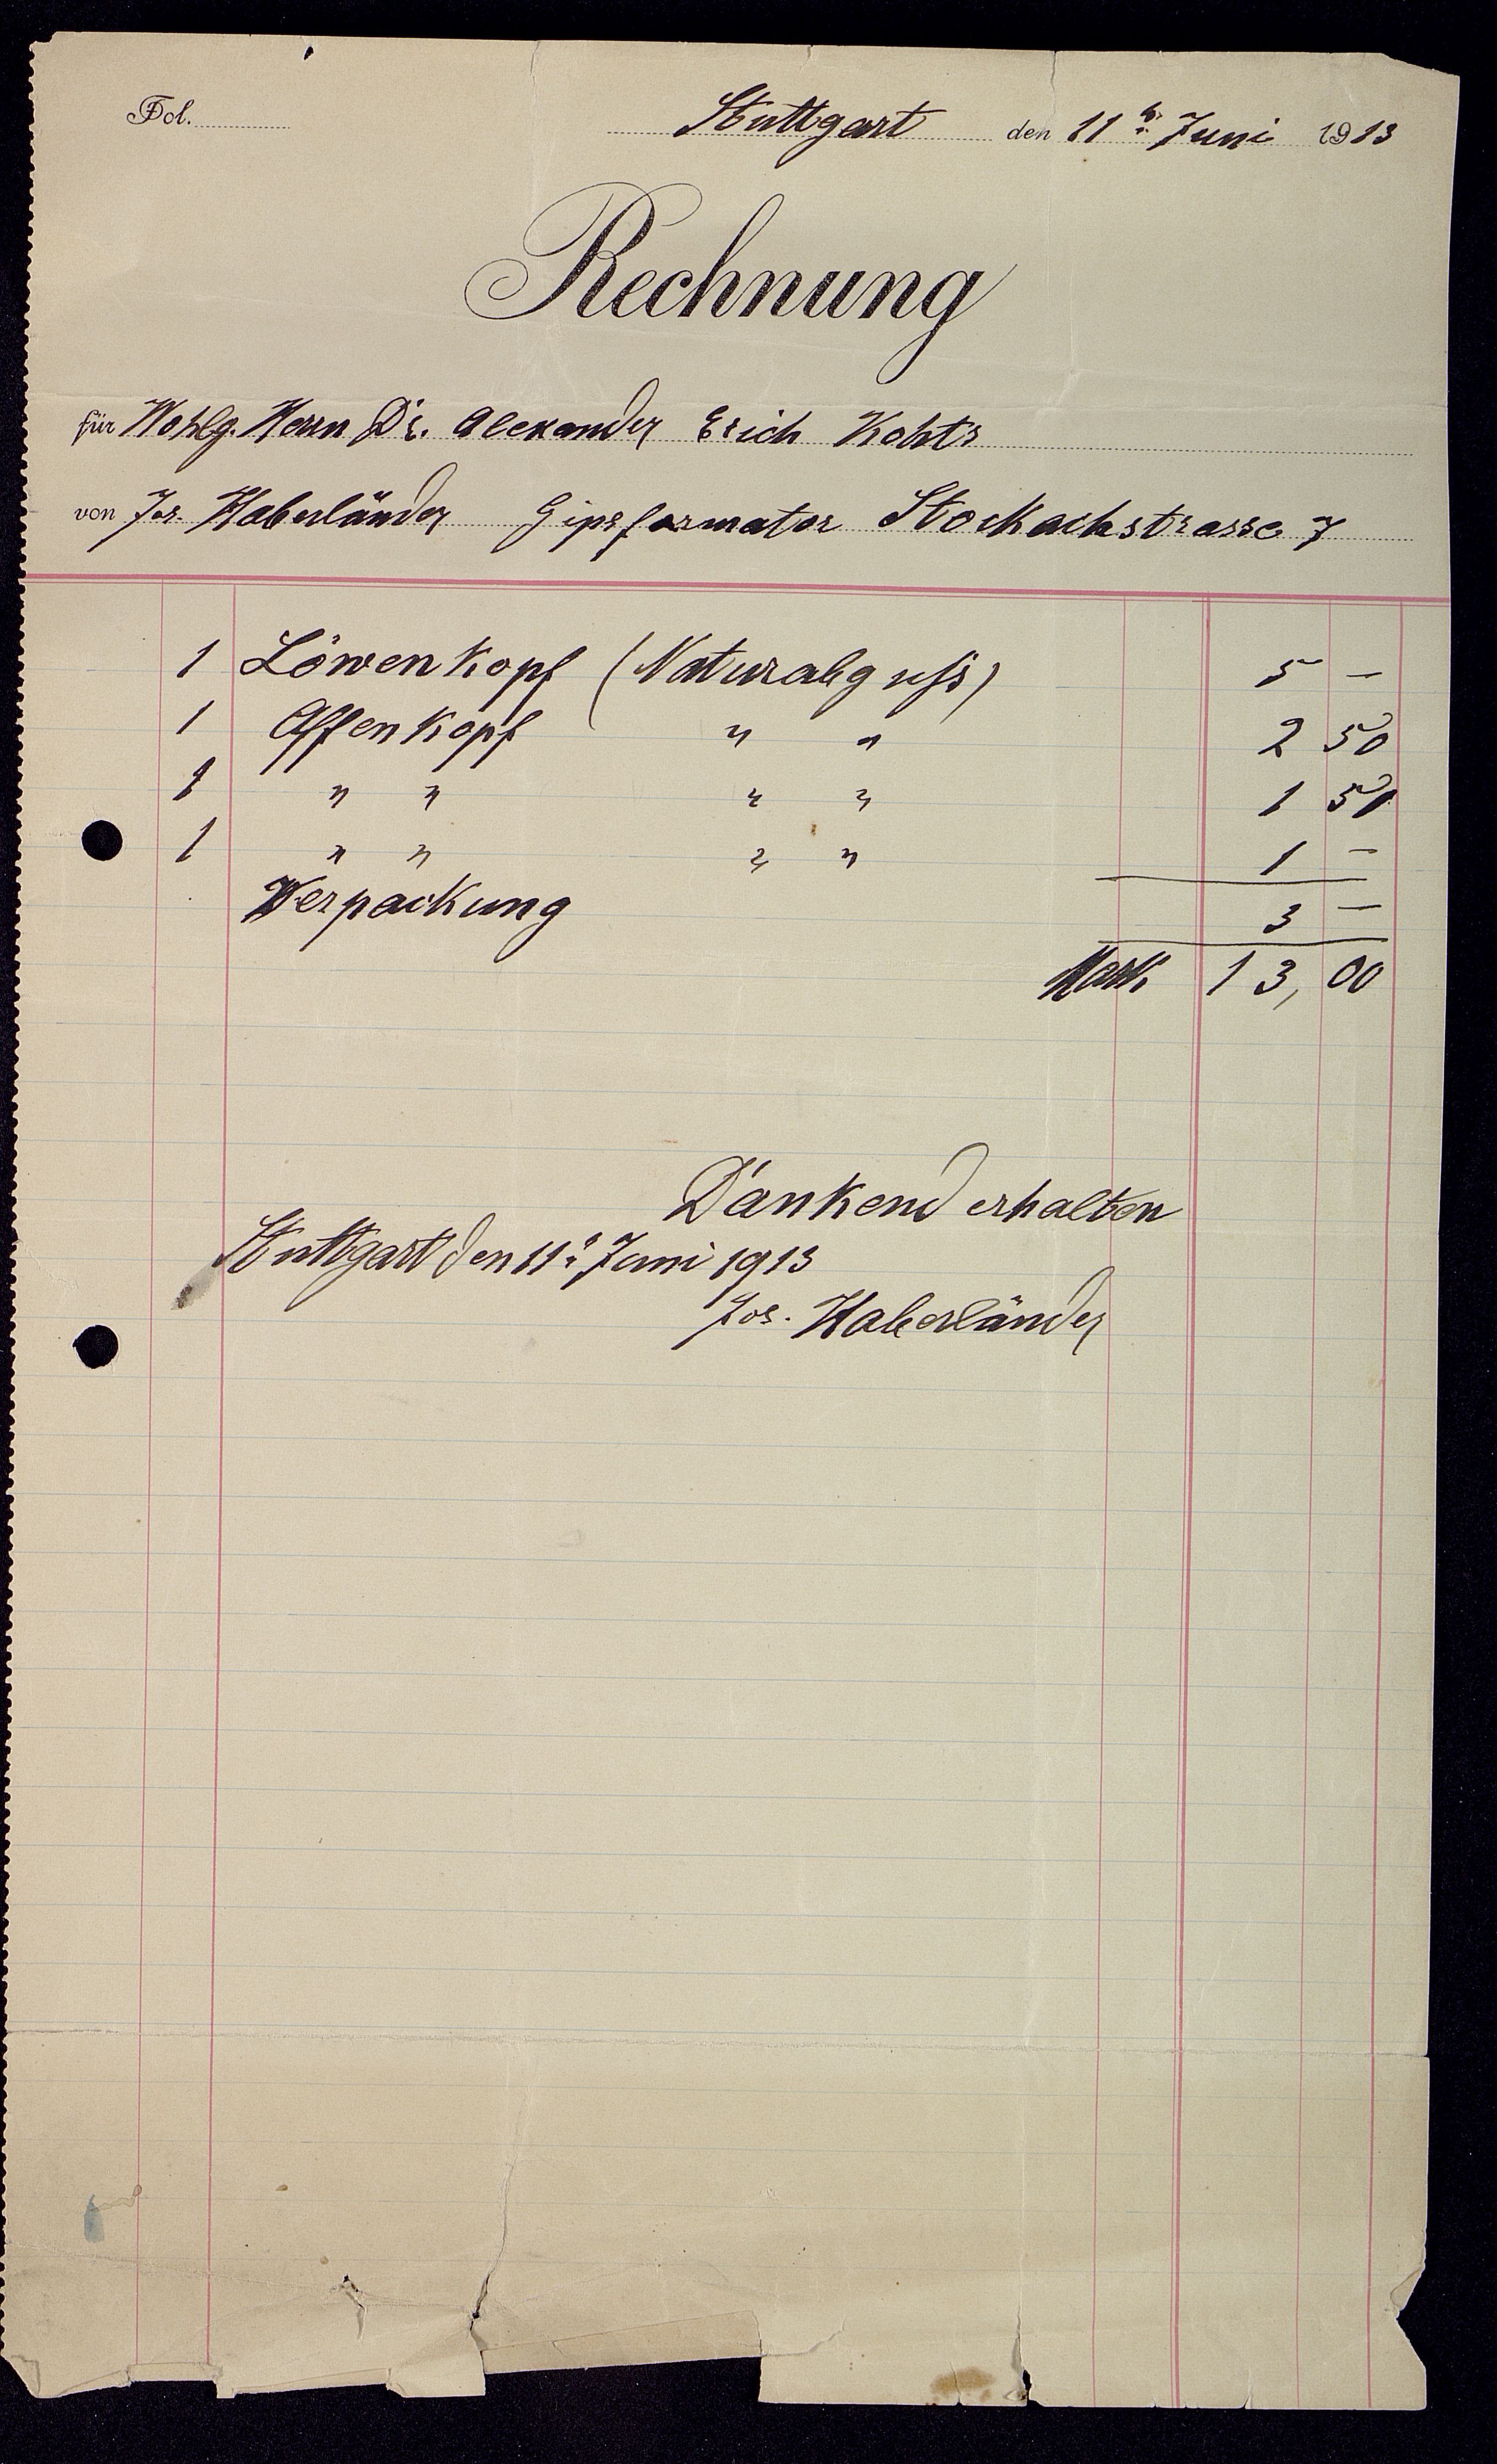 Fol.
Stuttgart den 11. Juni 1913
Rechnung
für Wohlg. Herrn Dr. Alexander Erich Kohts
von Jos. Haberländer Gipsformator Stockachstrasse 7
1 Löwenkopf (Naturabguß) 5 —
1 Affenkopf " " 2 50
1 " " " " 1 50
1 " " " " 1 —
Verpackung 3 —
Mark 13,00
Dankend erhalten
Stuttgart den 11. Juni 1913
Jos. Haberländer